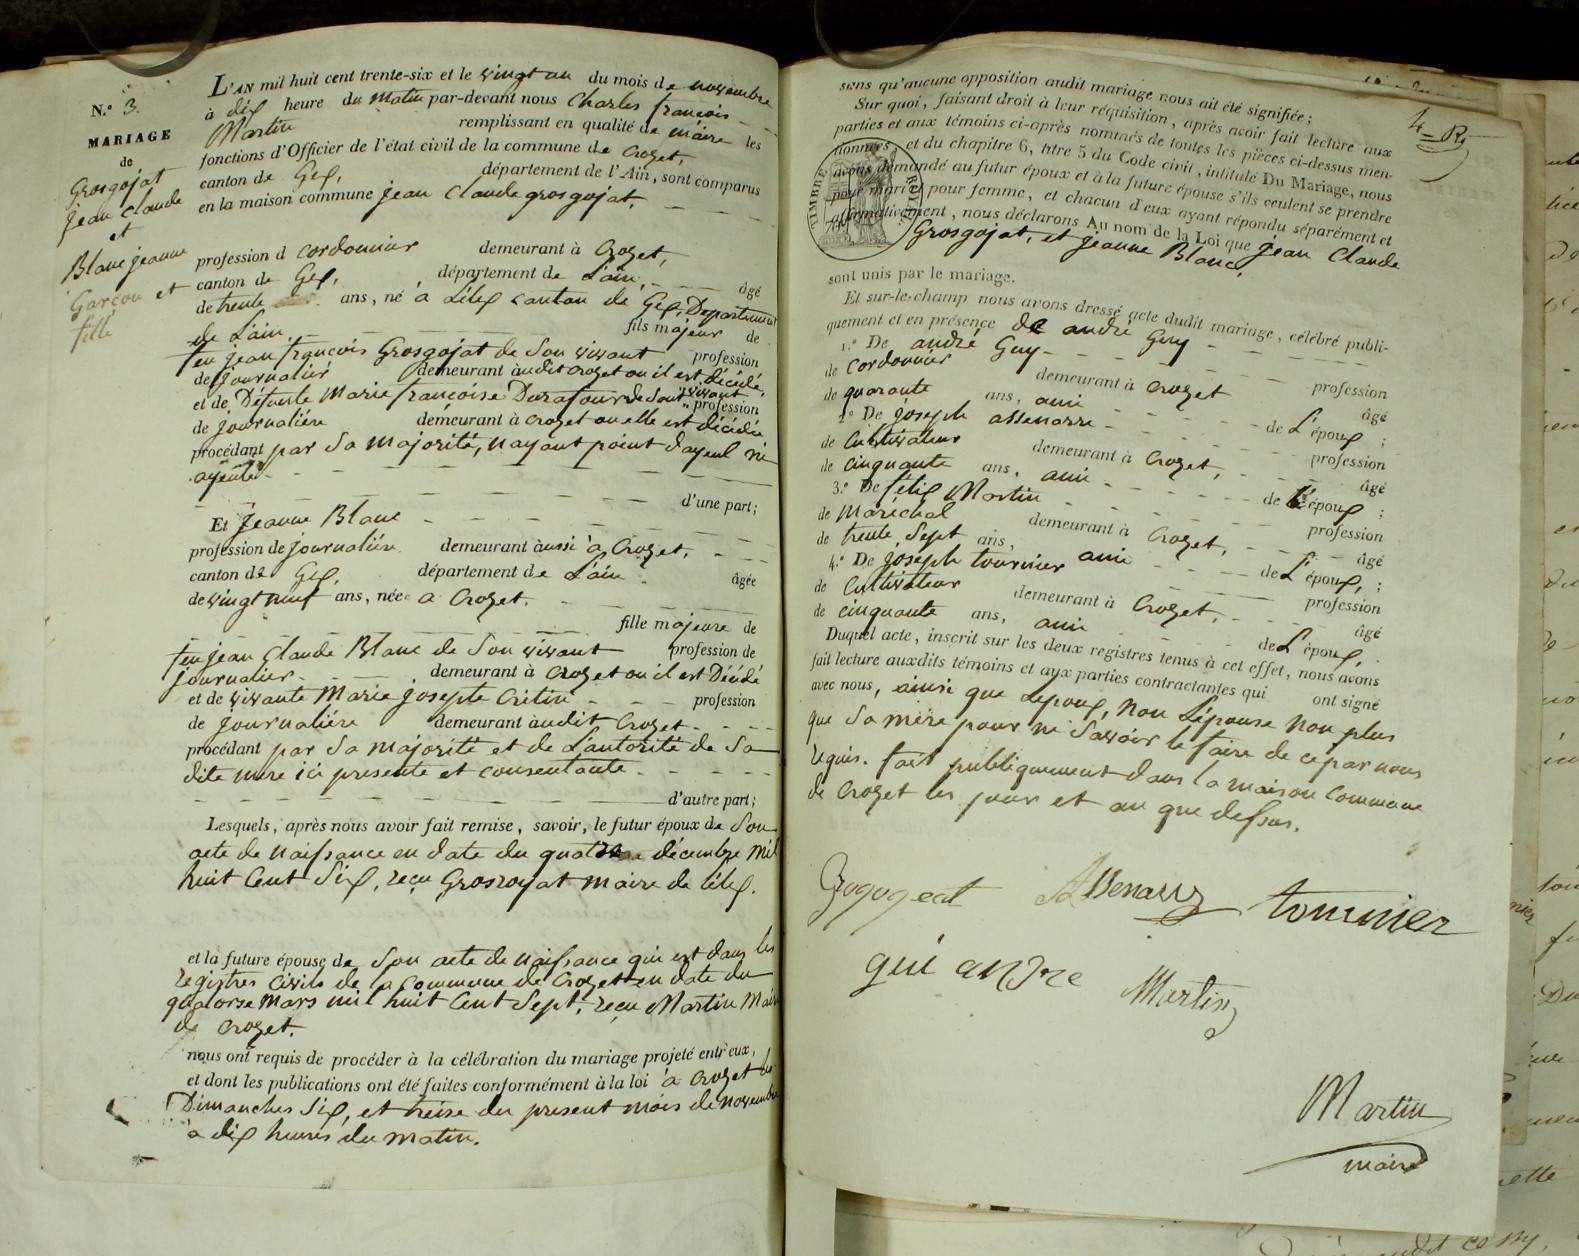 N.º 3.
MARIAGE
de
Grosgojat
jean Claude
et
Blanc jeanne
Garçon et
fille
L'AN mil huit cent trente-six et le vingt un du mois de novembre
à dix heure du matin par-devant nous Charles françois
Martin remplissant en qualité de maire les
fonctions d'Officier de l'état civil de la commune de Crozet,
canton de Gex, département de l'Ain, sont comparus
en la maison commune jean Claude grosgojat.
profession d cordonnier demeurant à Crozet,
canton de Gex, département de L'ain, âgé
de trente ans, né à Lélex canton de Gex, Departement
de L'ain. fils majeur de
feu jean françois Grosgojat de Son vivant profession
de journalier demeurant audit Crozet ou il est décédé,
et de Défunte Marie françoise Durafour de Sont vivant profession
de journalière demeurant à Crozet ou elle est décédée
procédant par Sa majorité, nayant point dayeul ni
ayeule
d'une part;
Et Jeanne Blanc
profession de journalière demeurant aussi à Crozet,
canton de Gex, département de L'ain âgée
de vingt neuf ans, née à Crozet.
fille majeure de
feu jean Claude Blanc de Son vivant profession de
journalier demeurant à Crozet ou il est Décédé
et de vivante Marie josephte Critin profession
de journalière demeurant audit Crozet
procédant par Sa majorité et de L'autorité de Sa
dite mere ici presente et consentante.
d'autre part;
Lesquels, après nous avoir fait remise, savoir, le futur époux de Son
acte de naissance en date du quatre décembre mil
huit Cent Six, reçu Grosroyat maire de Lélex.
et la future épouse de Son acte de naissance qui est dans les
registres Civils de la Commune de Crozet en date du
quatorse mars mil huit Cent Sept, reçu Martin Maire
de Crozet.
nous ont requis de procéder à la célébration du mariage projeté entr'eux,
et dont les publications ont été faites conformément à la loi à Crozet les
Dimanches Six, et treise du present mois de novembre
à dix heures du matin.
4
sens qu'aucune opposition audit mariage nous ait été signifiée;
Sur quoi, faisant droit à leur réquisition, après avoir fait lecture aux
parties et aux témoins ci-après nommés de toutes les pièces ci-dessus men-
tionnées, et du chapitre 6, titre 5 du Code civil, intitulé Du Mariage, nous
avons demandé au futur époux et à la future épouse s'ils veulent se prendre
pour mari et pour femme, et chacun d'eux ayant répondu séparément et
affirmativement, nous déclarons Au nom de la Loi que Jean Claude
Grosgojat, et Jeanne Blanc,
sont unis par le mariage.
TIMBRE ROYAL
Et sur-le-champ nous avons dressé acte dudit mariage, célébré publi-
quement et en présence de andré Guy
1.º De andré Guy profession
de cordonnier demeurant à Crozet âgé
de quarante ans, ami de L'époux;
2.º De joseph assenarre profession
de Cultivateur demeurant à Crozet, âgé
de cinquante ans, ami de L'époux;
3.º De félix Martin profession
de maréchal demeurant à Crozet, âgé
de trente Sept ans, ami de L'époux;
4.º De joseph tournier profession
de Cultivateur demeurant à Crozet, âgé
de cinquante ans, ami de L'époux,
Duquel acte, inscrit sur les deux registres tenus à cet effet, nous avons
fait lecture auxdits témoins et aux parties contractantes qui ont signé
avec nous, ainsi que Lepoux, non L'épouse non plus
que Sa mère pour ne Savoir le faire de ce par nous
requis. fait publiquement dans la maison Commune
de Crozet les jour et an que dessus.
Grogogeat Assenarre tournier
gui andre Martin
Martin
maire